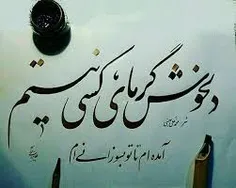 دلخوش گرمای کسی نیستم
آمده ام تا تو بسوزانی ام